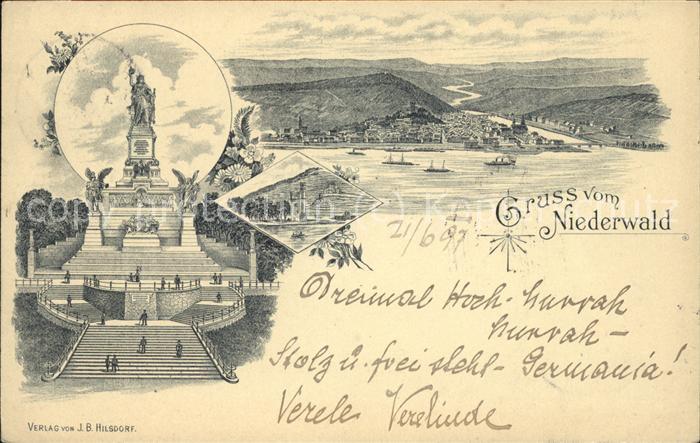 Gruss vom
Niederwald
21/6 97
Dreimal Hoch - hurrah
hurrah -
Stolz u. frei steht - Germania!
VERLAG VON J. B. HILSDORF.